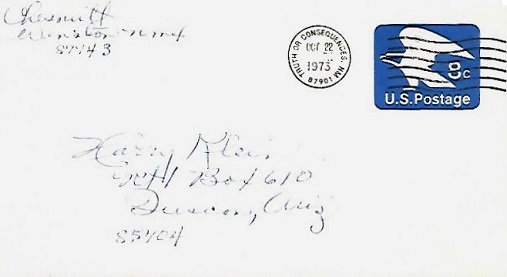 Chesnutt
Winston N mex
87943
TRUTH OR CONSEQUENCES, NM
OCT 22
1973
87901
8c
U.S. Postage
Harry Klein
Box 610
Tucson, Ariz
85704